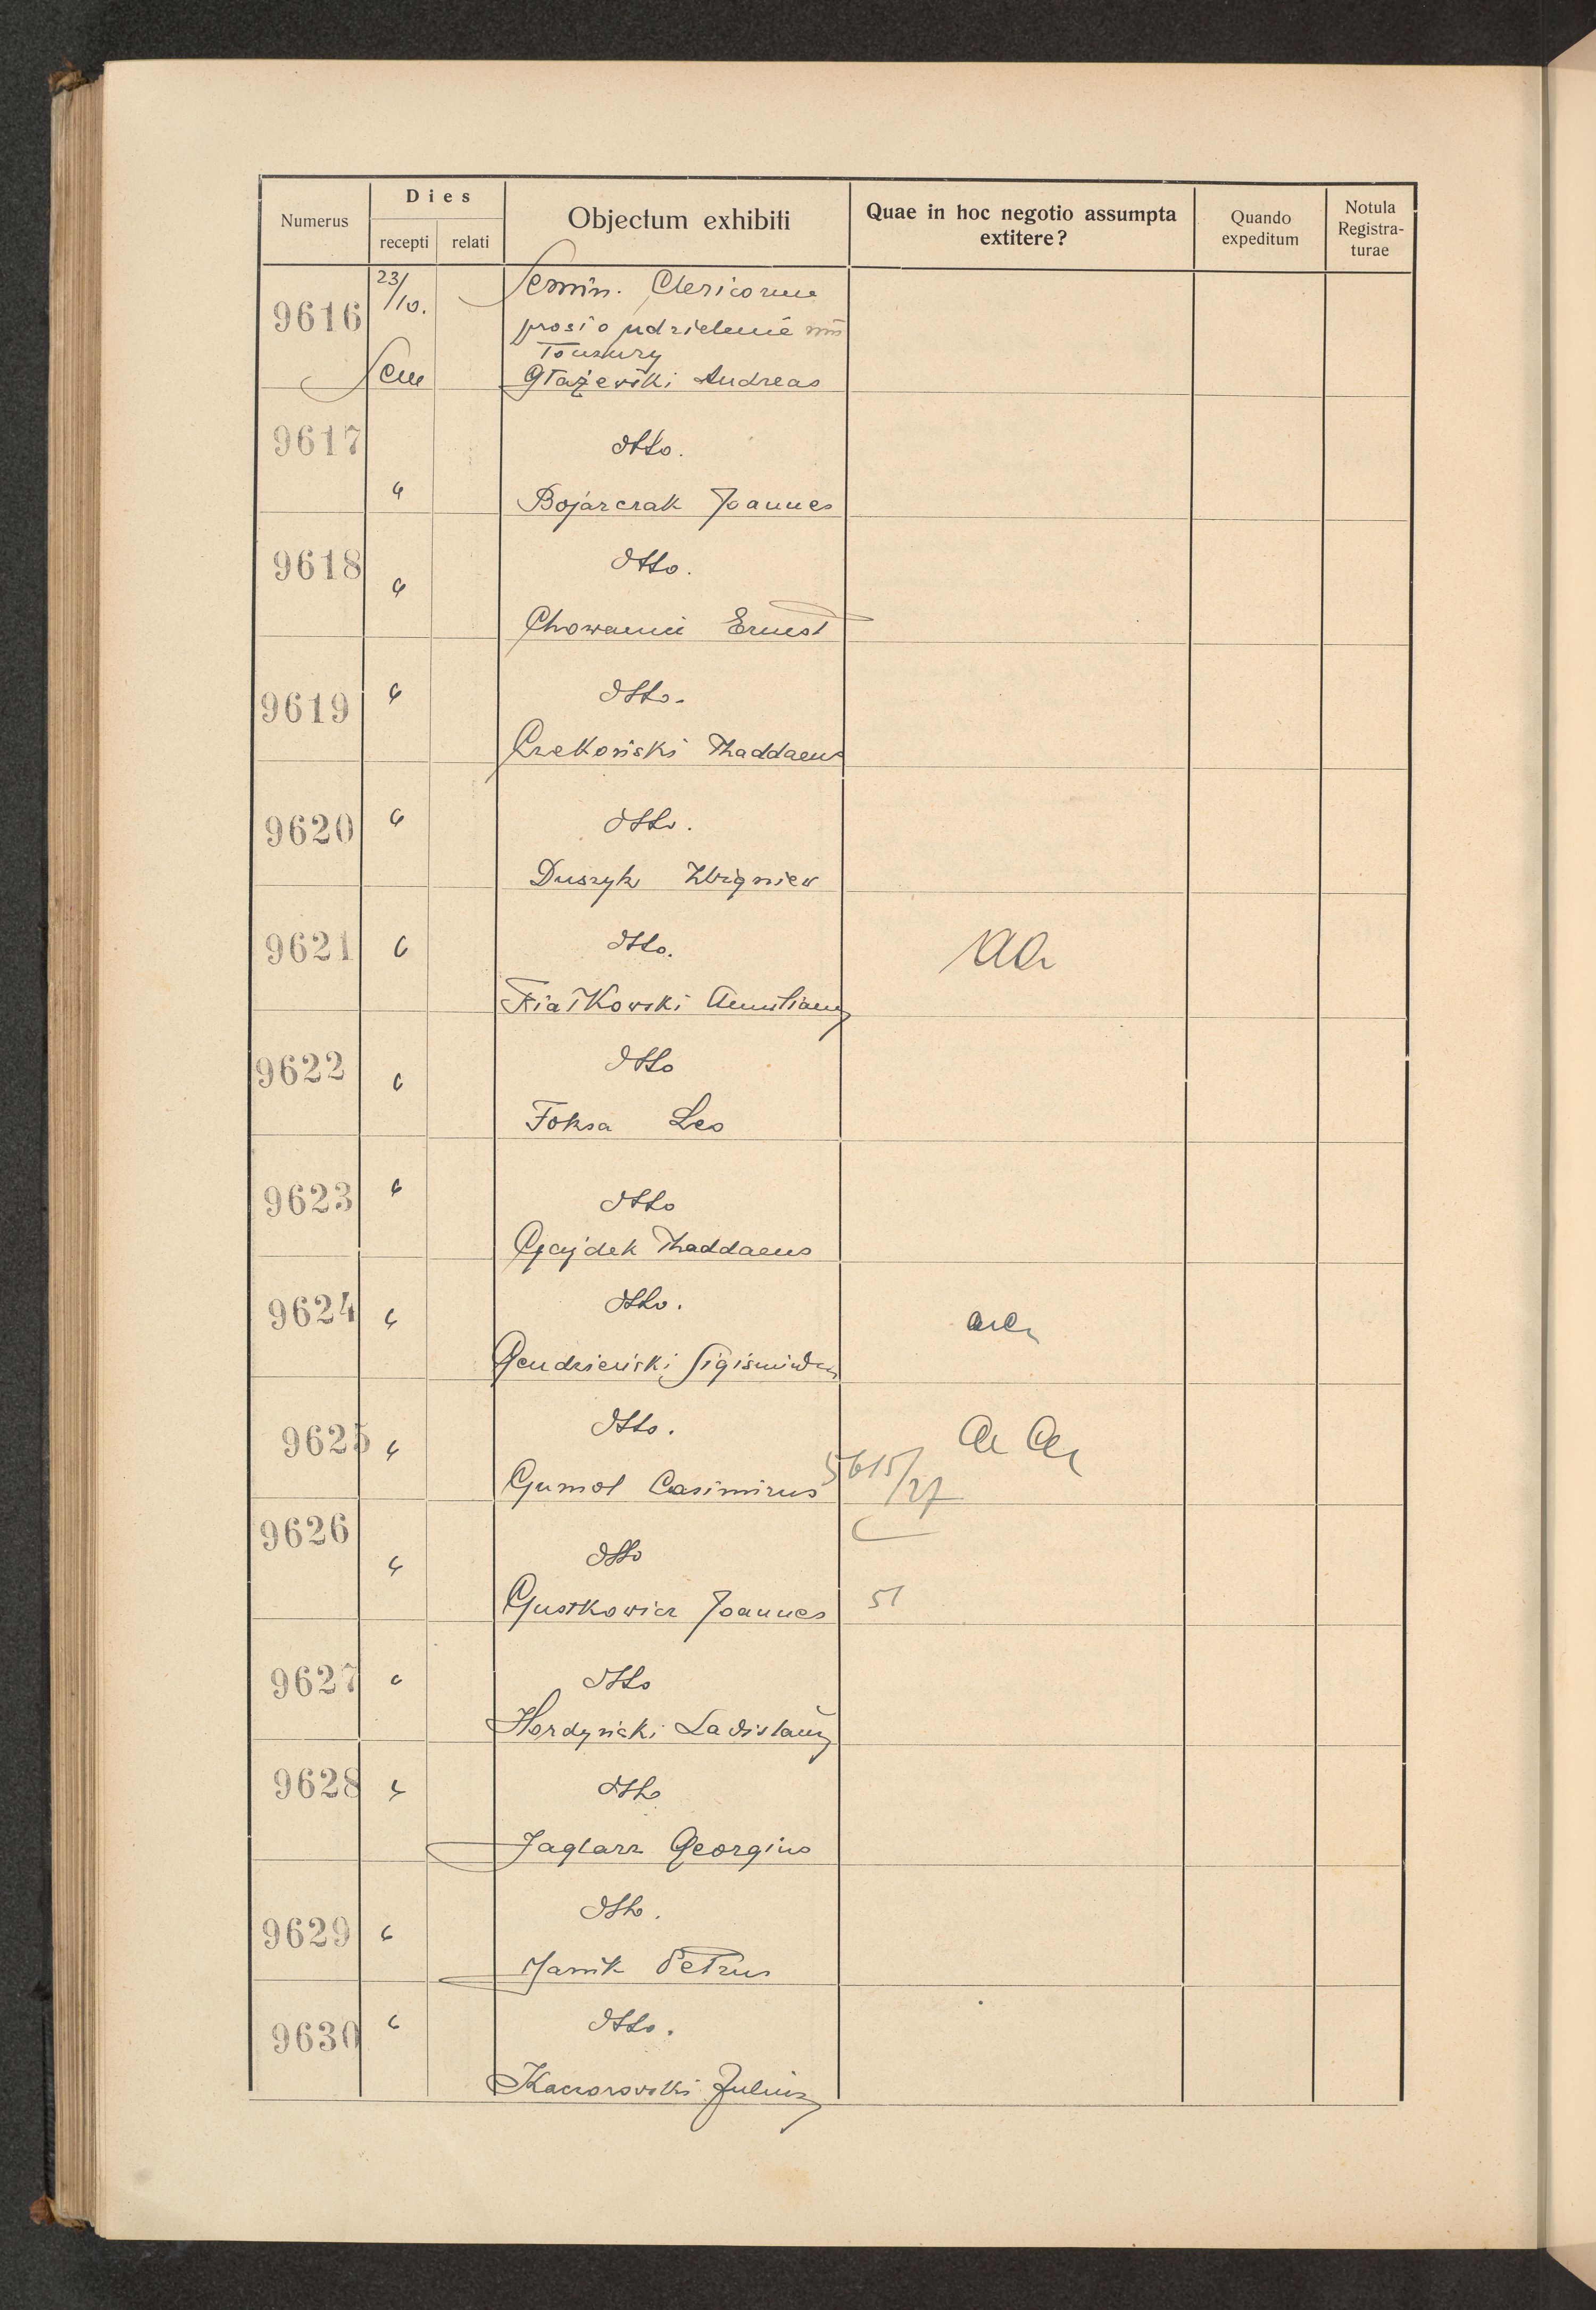 Numerus
Dies
recepti
relati
Objectum exhibiti
Quae in hoc negotio assumpta
extitere?
Quando
expeditum
Notula
Registra-
turae
9616
23/10.
Semin. Clericorum
prosi o udzielenie
Tonsury
Sem
Głażewski Andreas
9617
dtto.
"
Bojarczak Joannes
9618
"
dtto.
Chowaniec Ernest
9619
"
dtto.
Czekoński Thaddaeus
9620
"
dtto.
Duszyk Zbigniew
9621
"
dtto.
aa
Fiałkowski Aemilianus
9622
"
dtto
Foksa Leo
9623
"
dtto
Gajdek Thaddaeus
9624
"
dtto.
aa
Gendzieński Sigismundus
9625
"
dtto.
aa
Gumol Casimirus
5615/27
9626
"
dtto
Gustkowicz Joannes
51
9627
"
dtto
Hordyński Ladislaus
9628
"
dtto
Jaglarz Georgius
9629
"
dtto.
Janik Petrus
9630
"
dtto.
Kaczorowski Julius